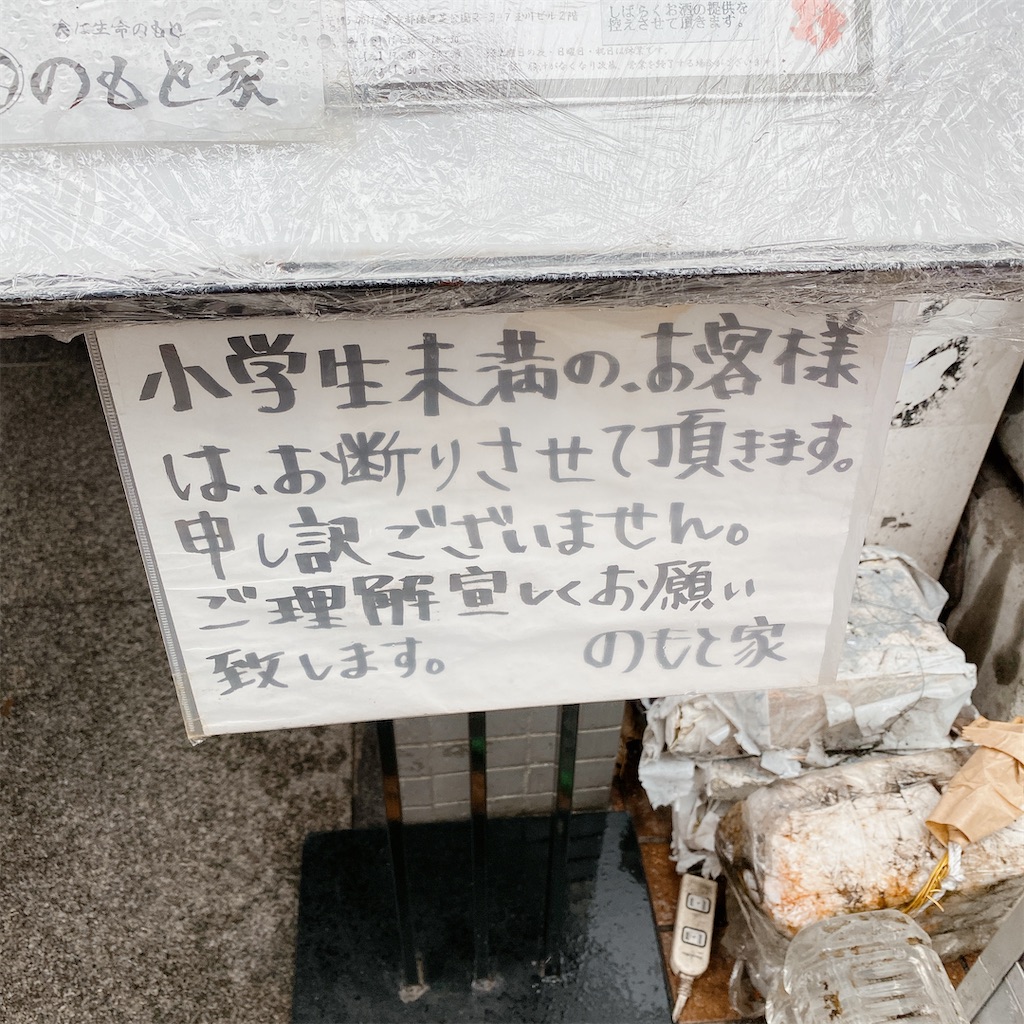 のもと家
しばらくお酒の提供を
控えさせて頂きます。
小学生未満の、お客様
は、お断りさせて頂きます。
申し訳ございません。
ご理解宜しくお願い
致します。 のもと家